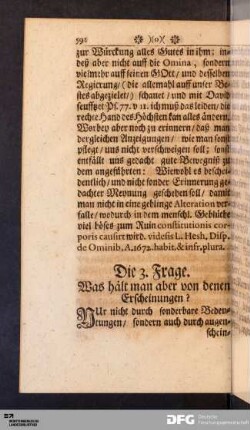 592 (o)
zur Würckung alles Gutes in ihm; in-
deß aber nicht auff die Omina, sondern
vielmehr auff seinen GOtt/ und desselben
Regierung/ (die allemahl auff unser Be-
stes abgezielet) schauet/ und mit David
seuffzet Ps. 77. v 11. ich muß das leiden/ die
rechte Hand des Höchsten kan alles ändern.
Worbey aber noch zu erinnern/ daß man
dergleichen Anzeigungen/ wie man sonst
pflegt/ uns nicht verschweigen soll; sonst
entfällt uns gedacht gute Bewegniß zu
dem angeführten: Wiewohl es beschei-
dentlich/ und nicht sonder Erinnerung ge-
dachter Meynung geschehen soll/ damit
man nicht in eine gehlinge Alteration ver-
falle/ wodurch in dem menschl. Geblüthe
viel böses zum Ruin constitutionis cor-
poris causirt wird. videsis L. Hesh, Disp.
de Ominib. A. 1672. habit. & infr. plura.
Die 3. Frage.
Was hält man aber von denen
Erscheinungen?
NUr nicht durch sonderbare Bedeu-
tungen/ sondern auch durch augen-
schein-
DFG Deutsche
Forschungsgemeinschaft